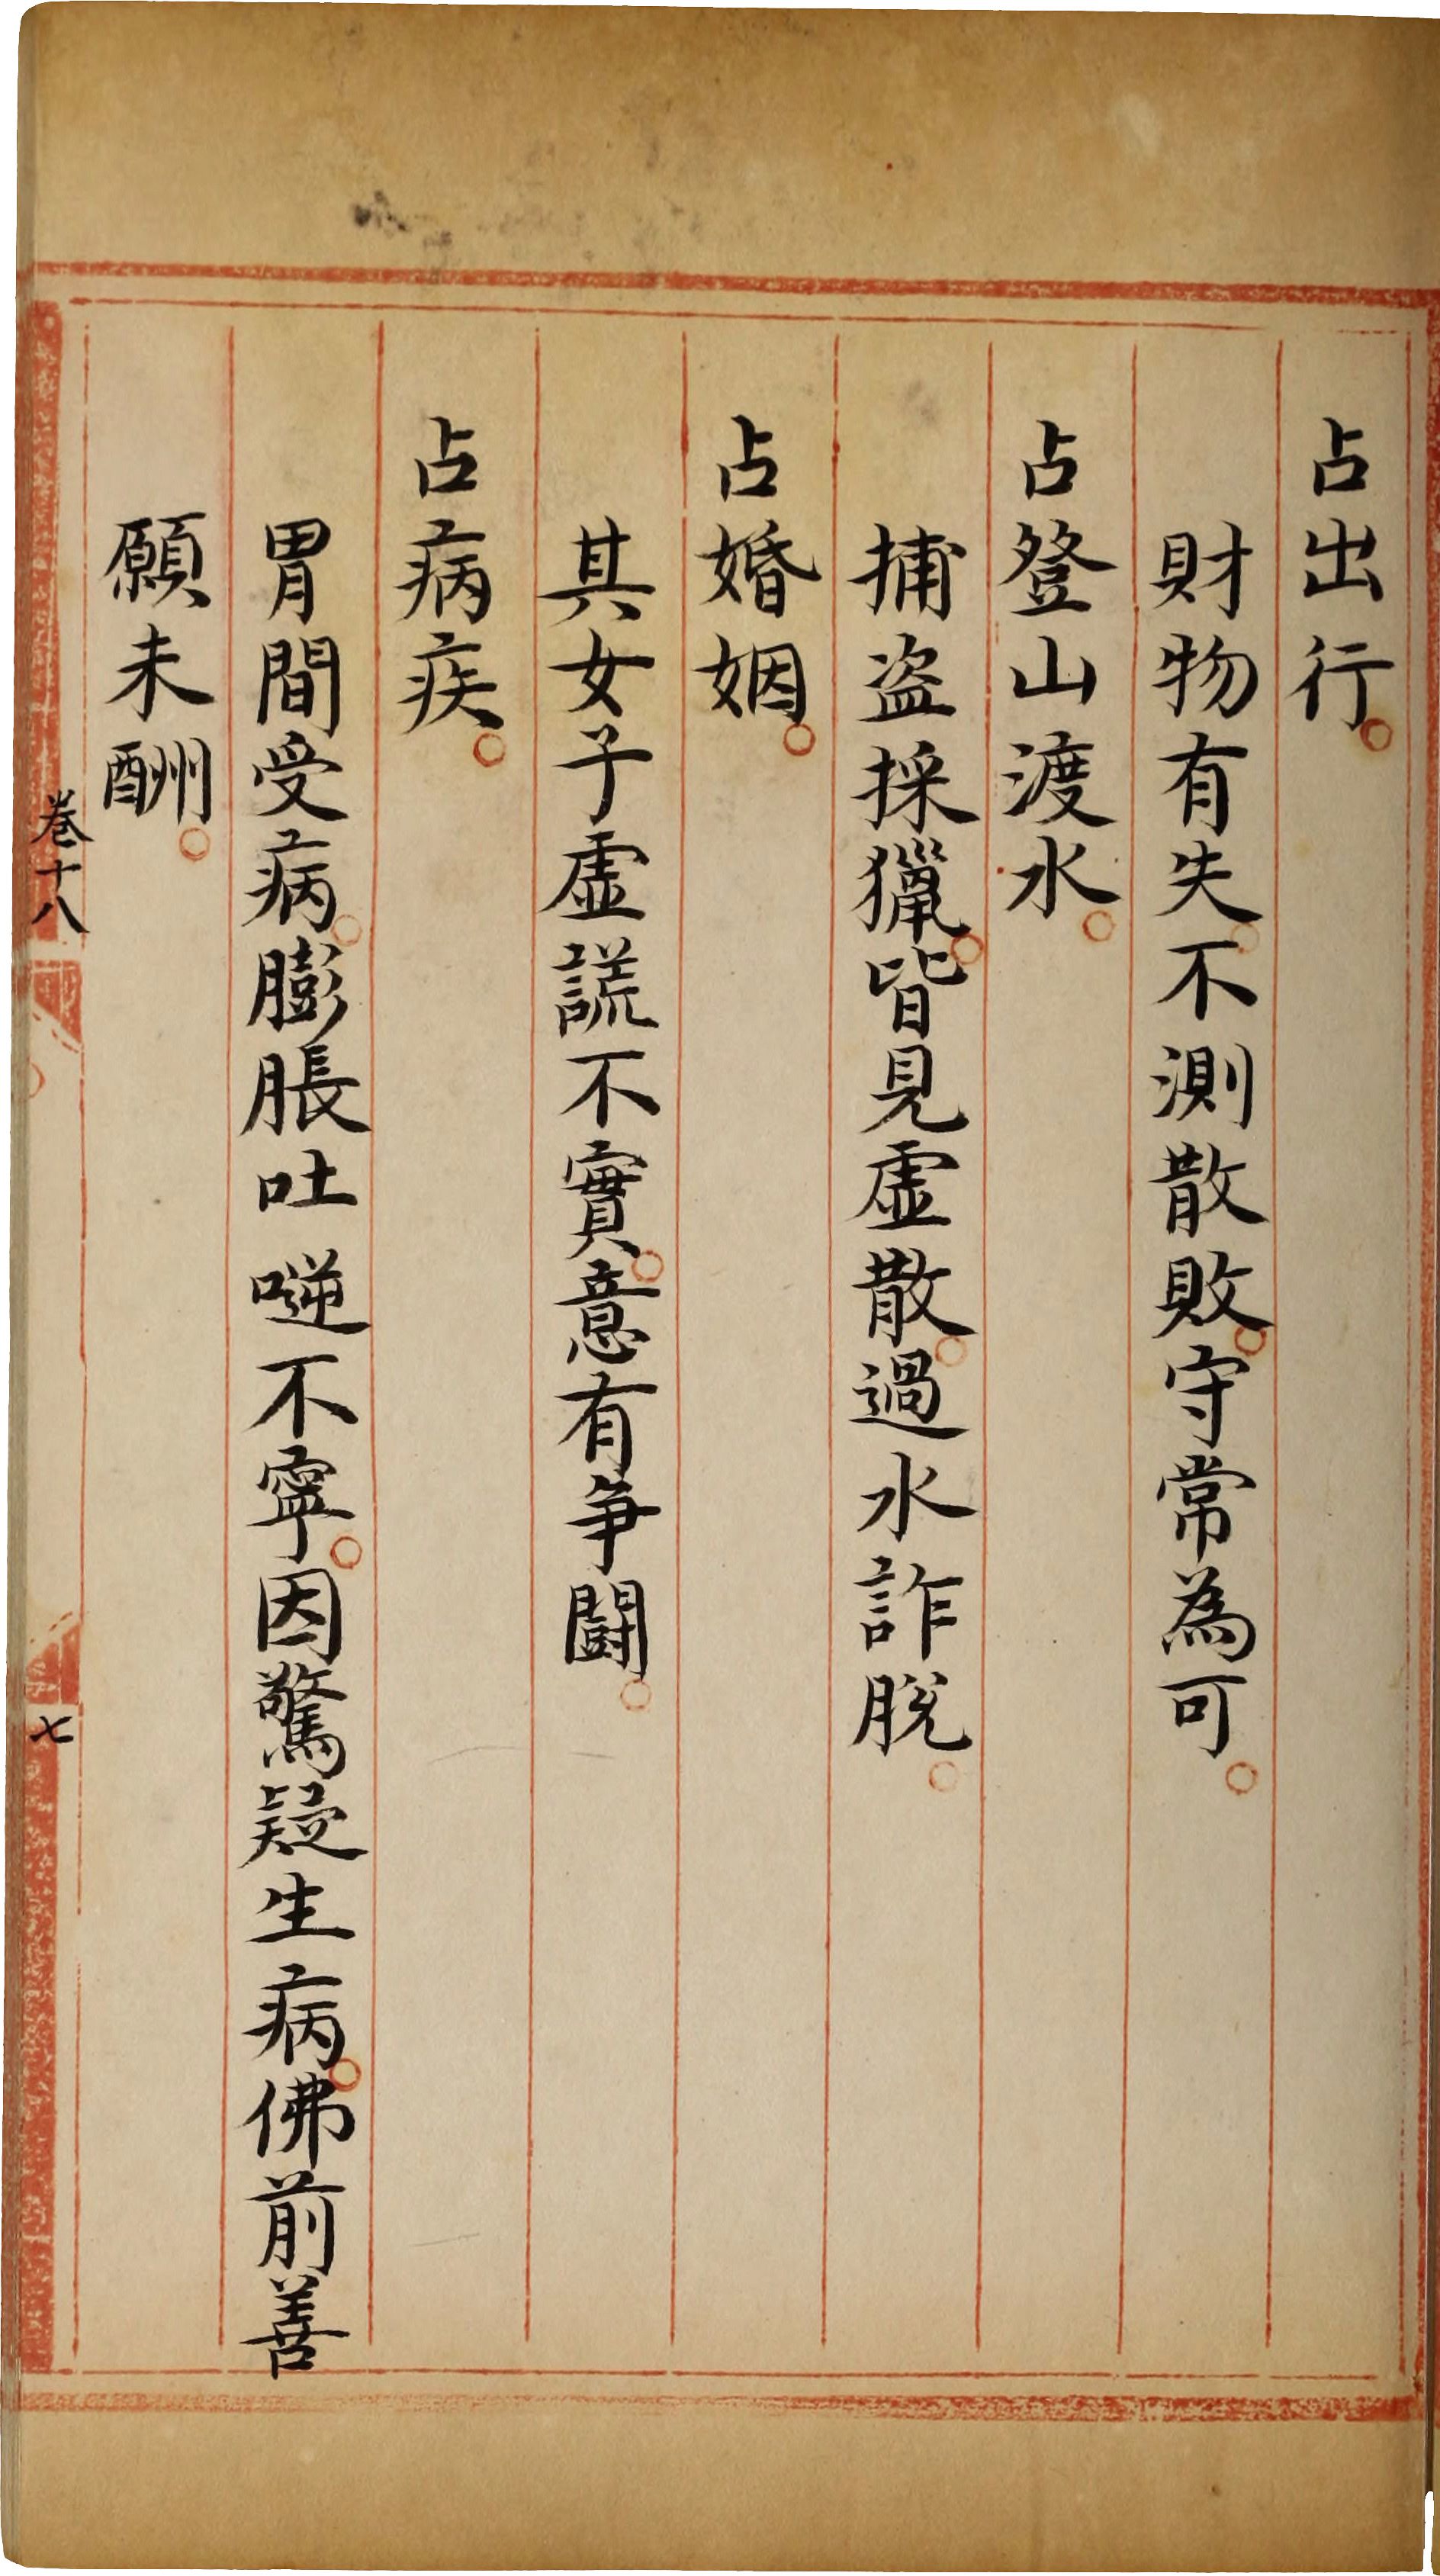 占出行。
財物有失。不測散敗。守常為可。
占登山渡水。
捕盗採獵。皆見虛散。過水詐脫。
占婚姻。
其女子虛謊不實。意有爭鬪。
占病疾。
胃間受病。膨脹吐𠿢不寧。因驚疑生病。佛前善
願未酬。
卷十八
七